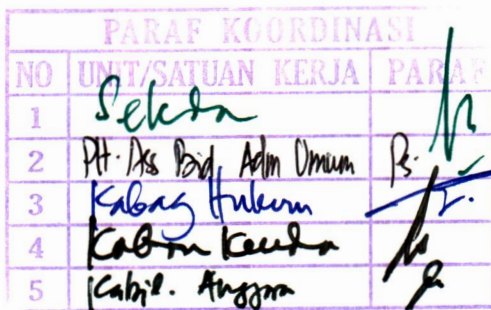 PARAF KOORDINASI
NO UNIT/SATUAN KERJA PARAF
1 Sekda
2 Plt. Ass Bid. Adm Umum
3 Kabag Hukum
4 Kaban Keuda
5 Kabid. Anggara